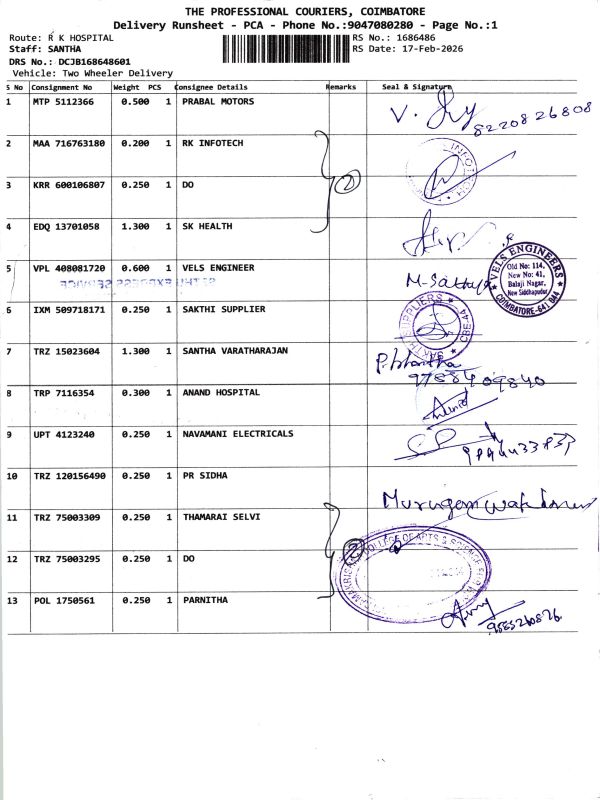 THE PROFESSIONAL COURIERS, COIMBATORE
Delivery Runsheet - PCA - Phone No.:9047080280 - Page No.:1
Route: R K HOSPITAL RS No.: 1686486
Staff: SANTHA RS Date: 17-Feb-2026
DRS No.: DCJB168648601
Vehicle: Two Wheeler Delivery
S No Consignment No Weight PCS Consignee Details Remarks Seal & Signature
1 MTP 5112366 0.500 1 PRABAL MOTORS
8220826808
2 MAA 716763180 0.200 1 RK INFOTECH
3 KRR 600106807 0.250 1 DO 2
4 EDQ 13701058 1.300 1 SK HEALTH
5 VPL 408081720 0.600 1 VELS ENGINEER M-Sathya
VELS ENGINEERS
Old No: 114,
New No: 41,
Balaji Nagar,
New Siddhapudur
COIMBATORE-641 044
6 IXM 509718171 0.250 1 SAKTHI SUPPLIER
SAKTHI SUPPLIERS CBE-44
7 TRZ 15023604 1.300 1 SANTHA VARATHARAJAN
9788409840
8 TRP 7116354 0.300 1 ANAND HOSPITAL
9 UPT 4123240 0.250 1 NAVAMANI ELECTRICALS
10 TRZ 120156490 0.250 1 PR SIDHA
Murugan
11 TRZ 75003309 0.250 1 THAMARAI SELVI
COLLEGE OF ARTS & SCIENCE
12 TRZ 75003295 0.250 1 DO 2
13 POL 1750561 0.250 1 PARNITHA